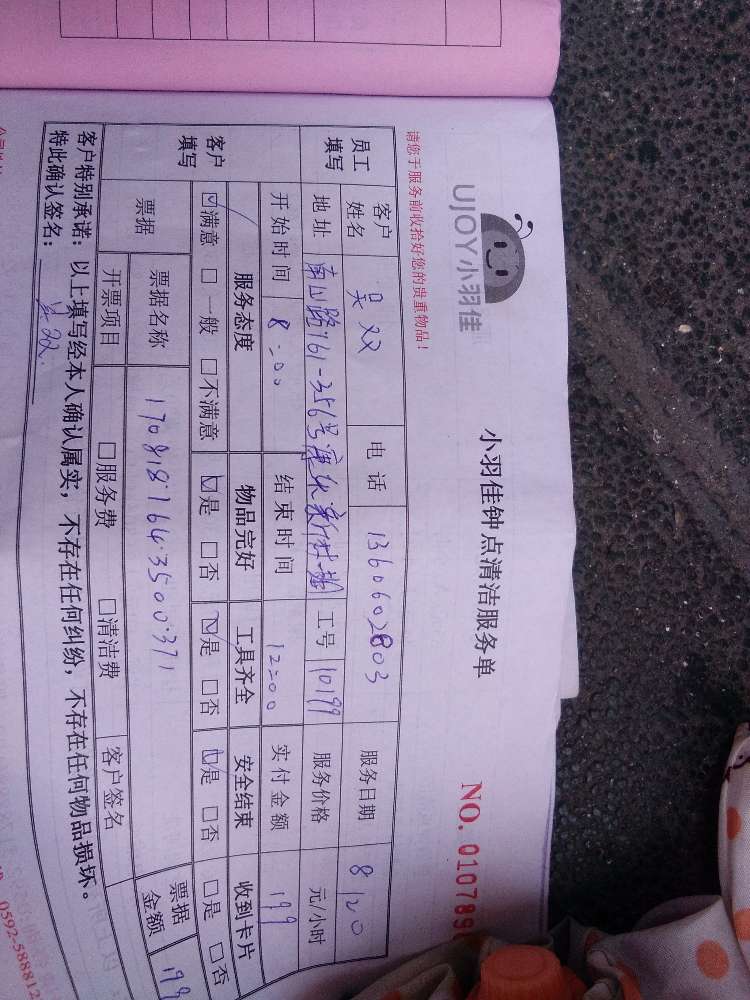 UJOY小羽佳
小羽佳钟点清洁服务单
NO. 010789
请您于服务前收拾好您的贵重物品！
员工填写 客户姓名 吴双 电话 1360602803 服务日期 8/20
地址 南山路761-356号 工号 10199 服务价格 元/小时
开始时间 8:00 结束时间 12:00 实付金额 199
客户填写 服务态度 物品完好 工具齐全 安全结束 收到卡片
☑满意 □一般 □不满意 ☑是 □否 ☑是 □否 ☑是 □否 □是 □否
票据 票据名称 170818·164·3500·371 票据金额 198
开票项目 □服务费 □清洁费 客户签名
客户特别承诺：以上填写经本人确认属实，不存在任何纠纷，不存在任何物品损坏。
特此确认签名： 吴双
0592-588812